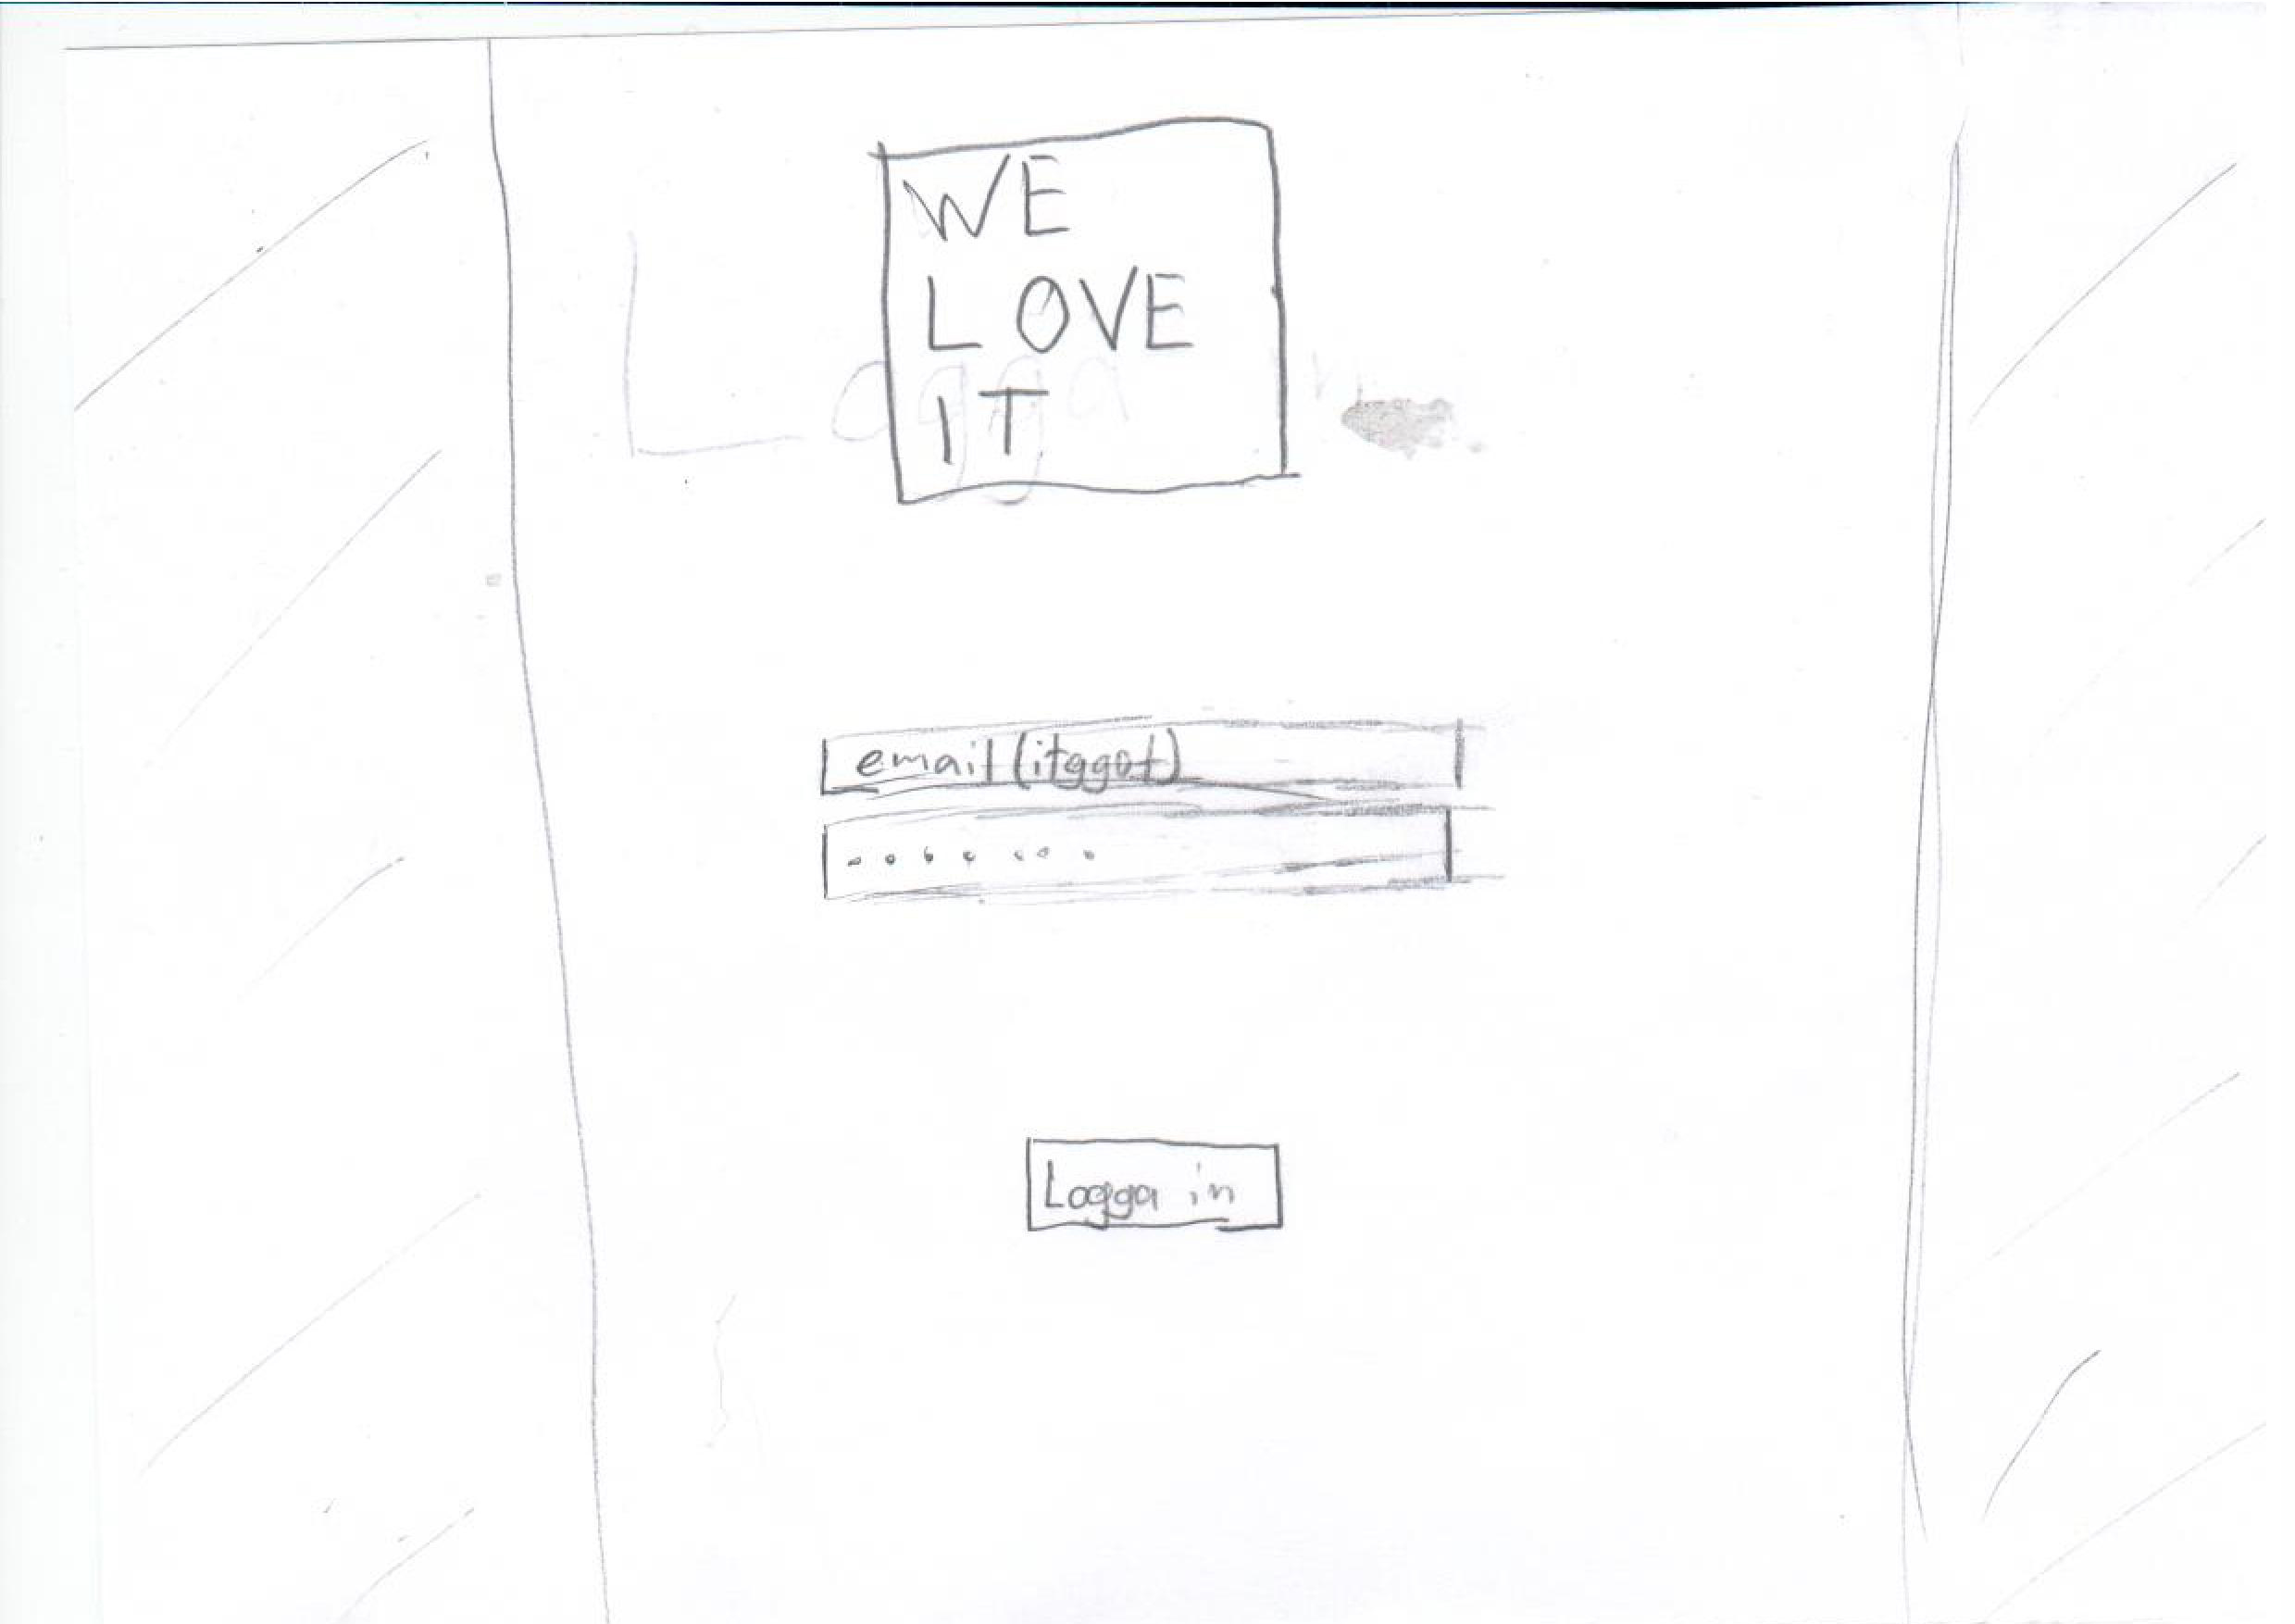 WE
LOVE
IT
Logga
email (itggot)
Logga in